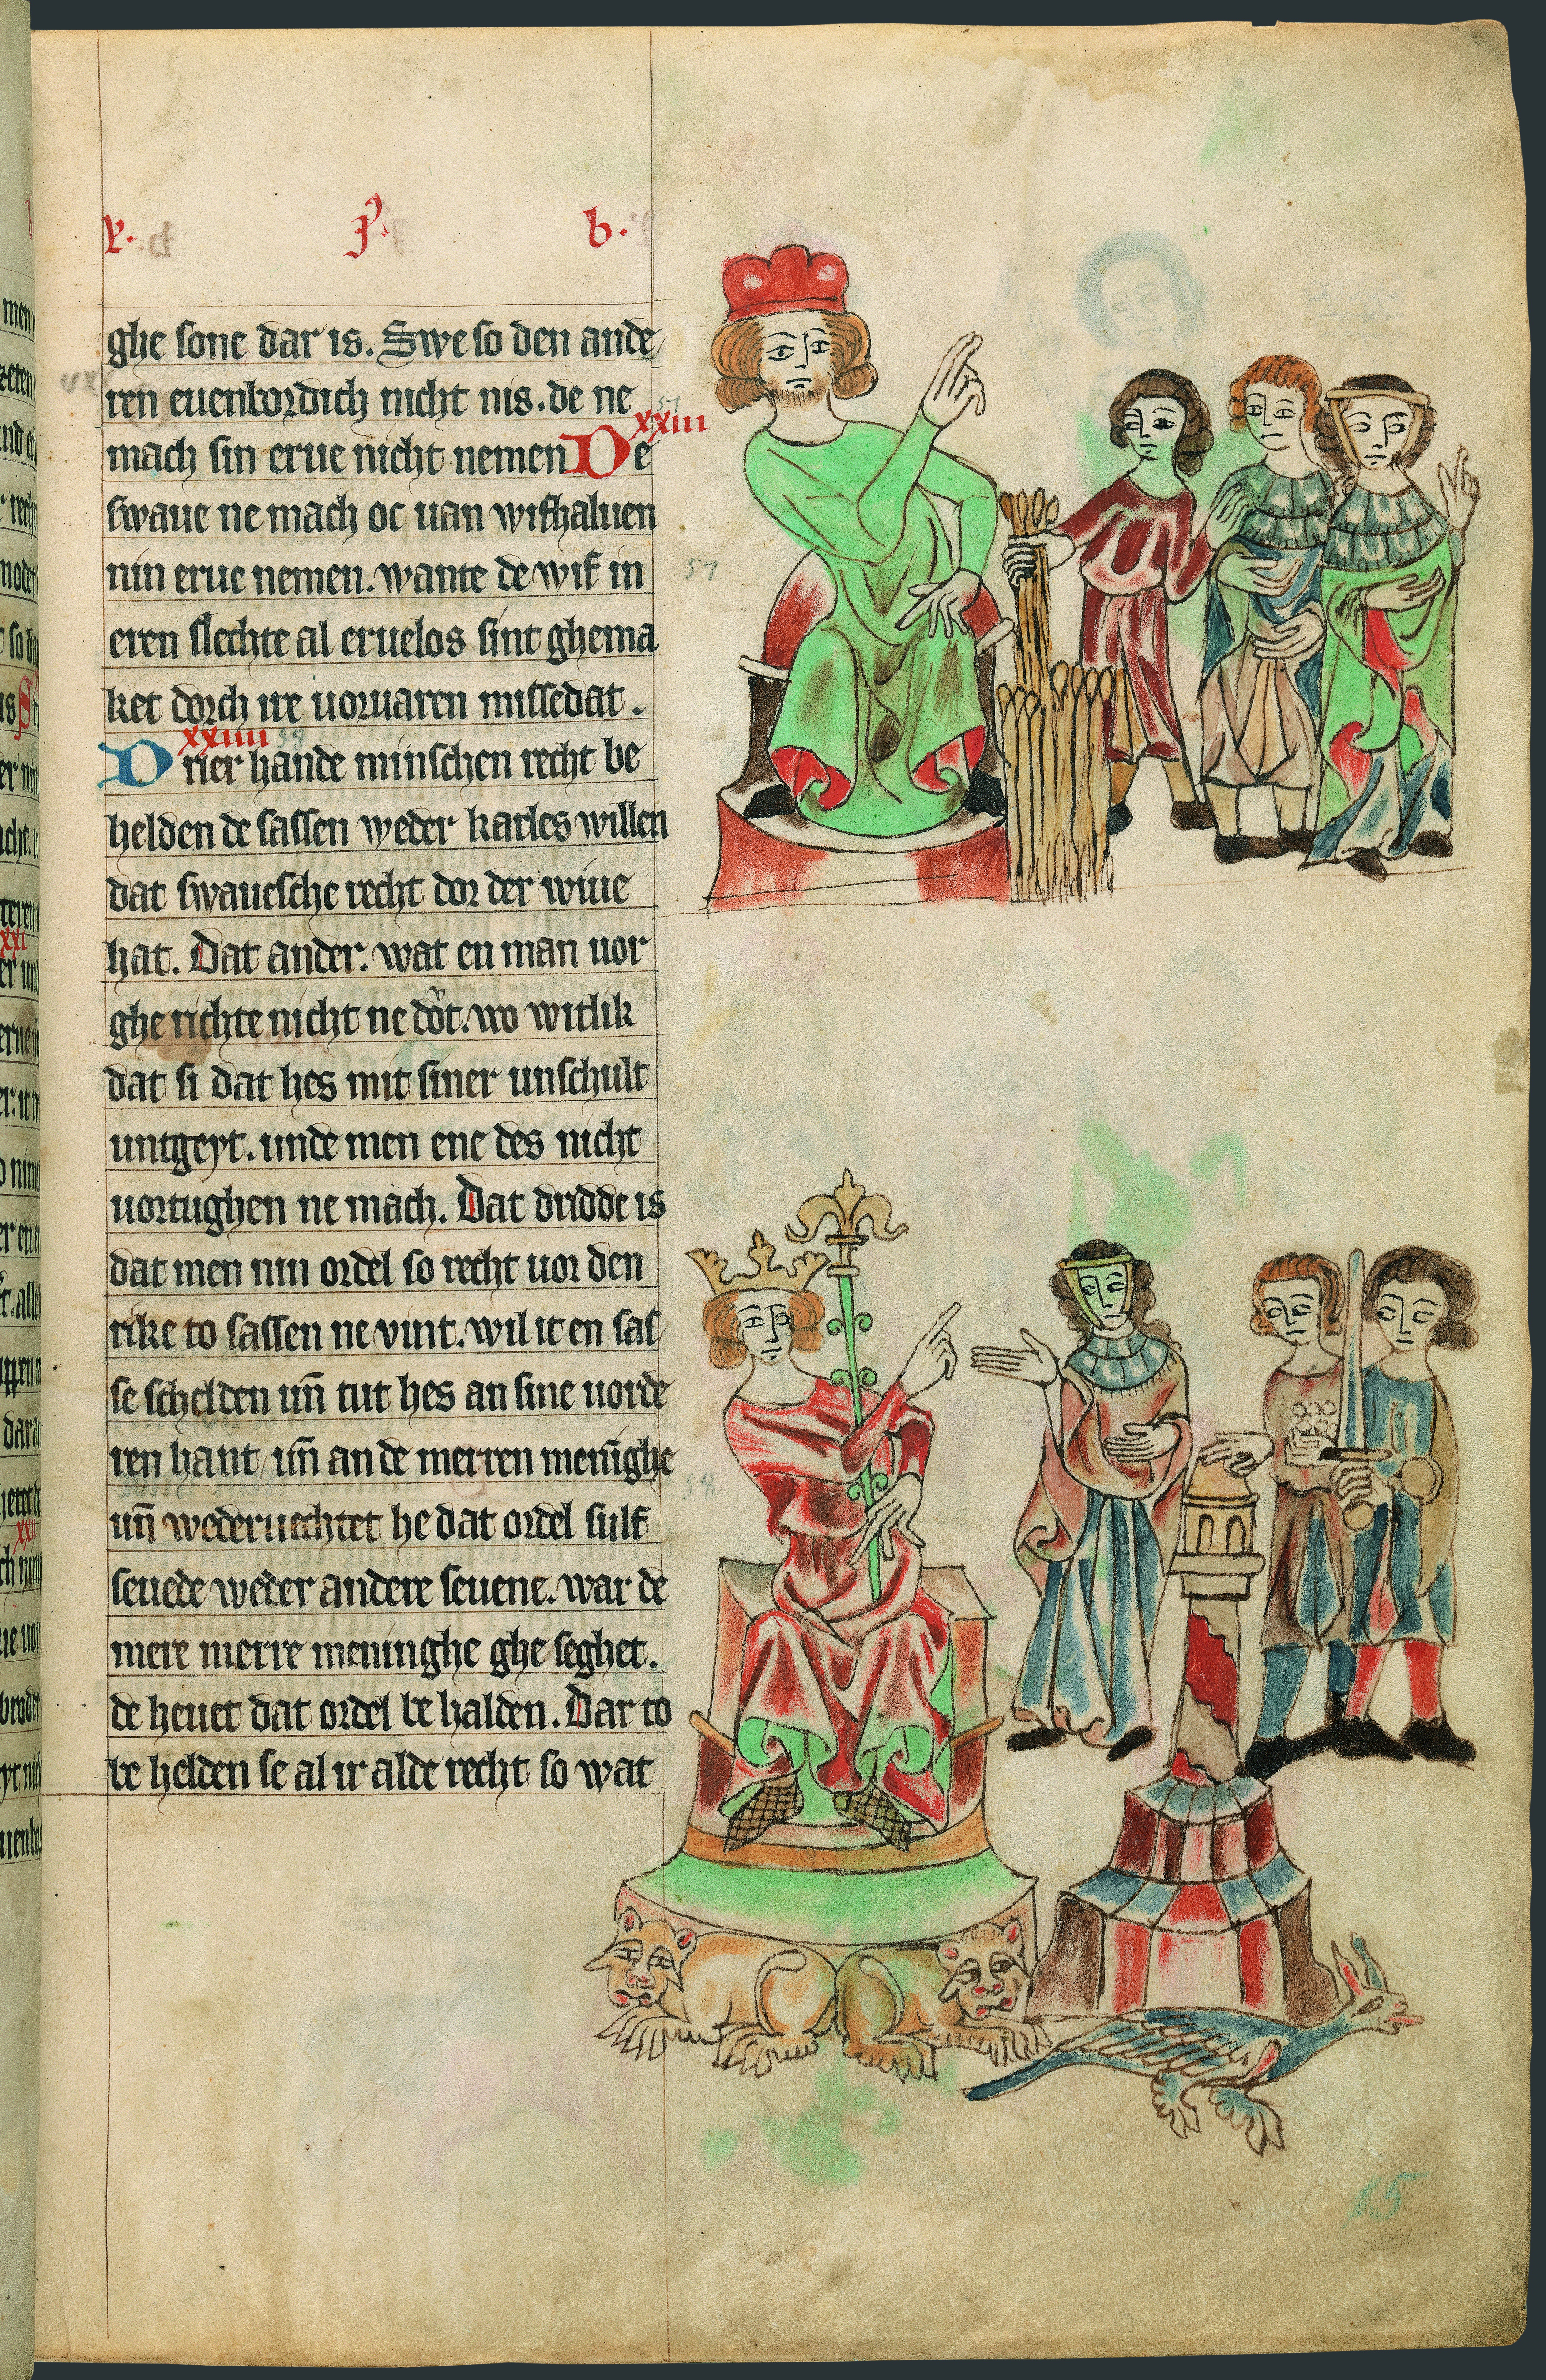 p. b.
ghe sone dar is. Swe so den ande
ren euenbordich nicht nis. de ne
xxiii
mach sin erue nicht nemen De
swaue ne mach oc uan wifhaluen
nin erue nemen. wante de wif in
57
eren slechte al eruelos sint ghema
ket dorch ire uoruaren missedat.
xxiiii 58
Drier hande minschen recht be
helden de sassen weder karles willen
dat swauesche recht dor der wiue
hat. Dat ander. wat en man uor
ghe richte nicht ne dot. wo witlik
dat si dat hes mit siner unschult
untgeyt. unde men ene des nicht
uortughen ne mach. Dat dridde is
dat men nin ordel so recht uor den
rike to sassen ne vint. wil it en sas
se schelden un̄ tut hes an sine uorde
ren hant un̄ an de merren menighe
58
un̄ wederuechtet he dat ordel sulf
seuede weder andere seuene. war de
mere merre meninghe ghe seghet.
de heuet dat ordel be halden. Dar to
be helden se al ir alde recht so wat
15